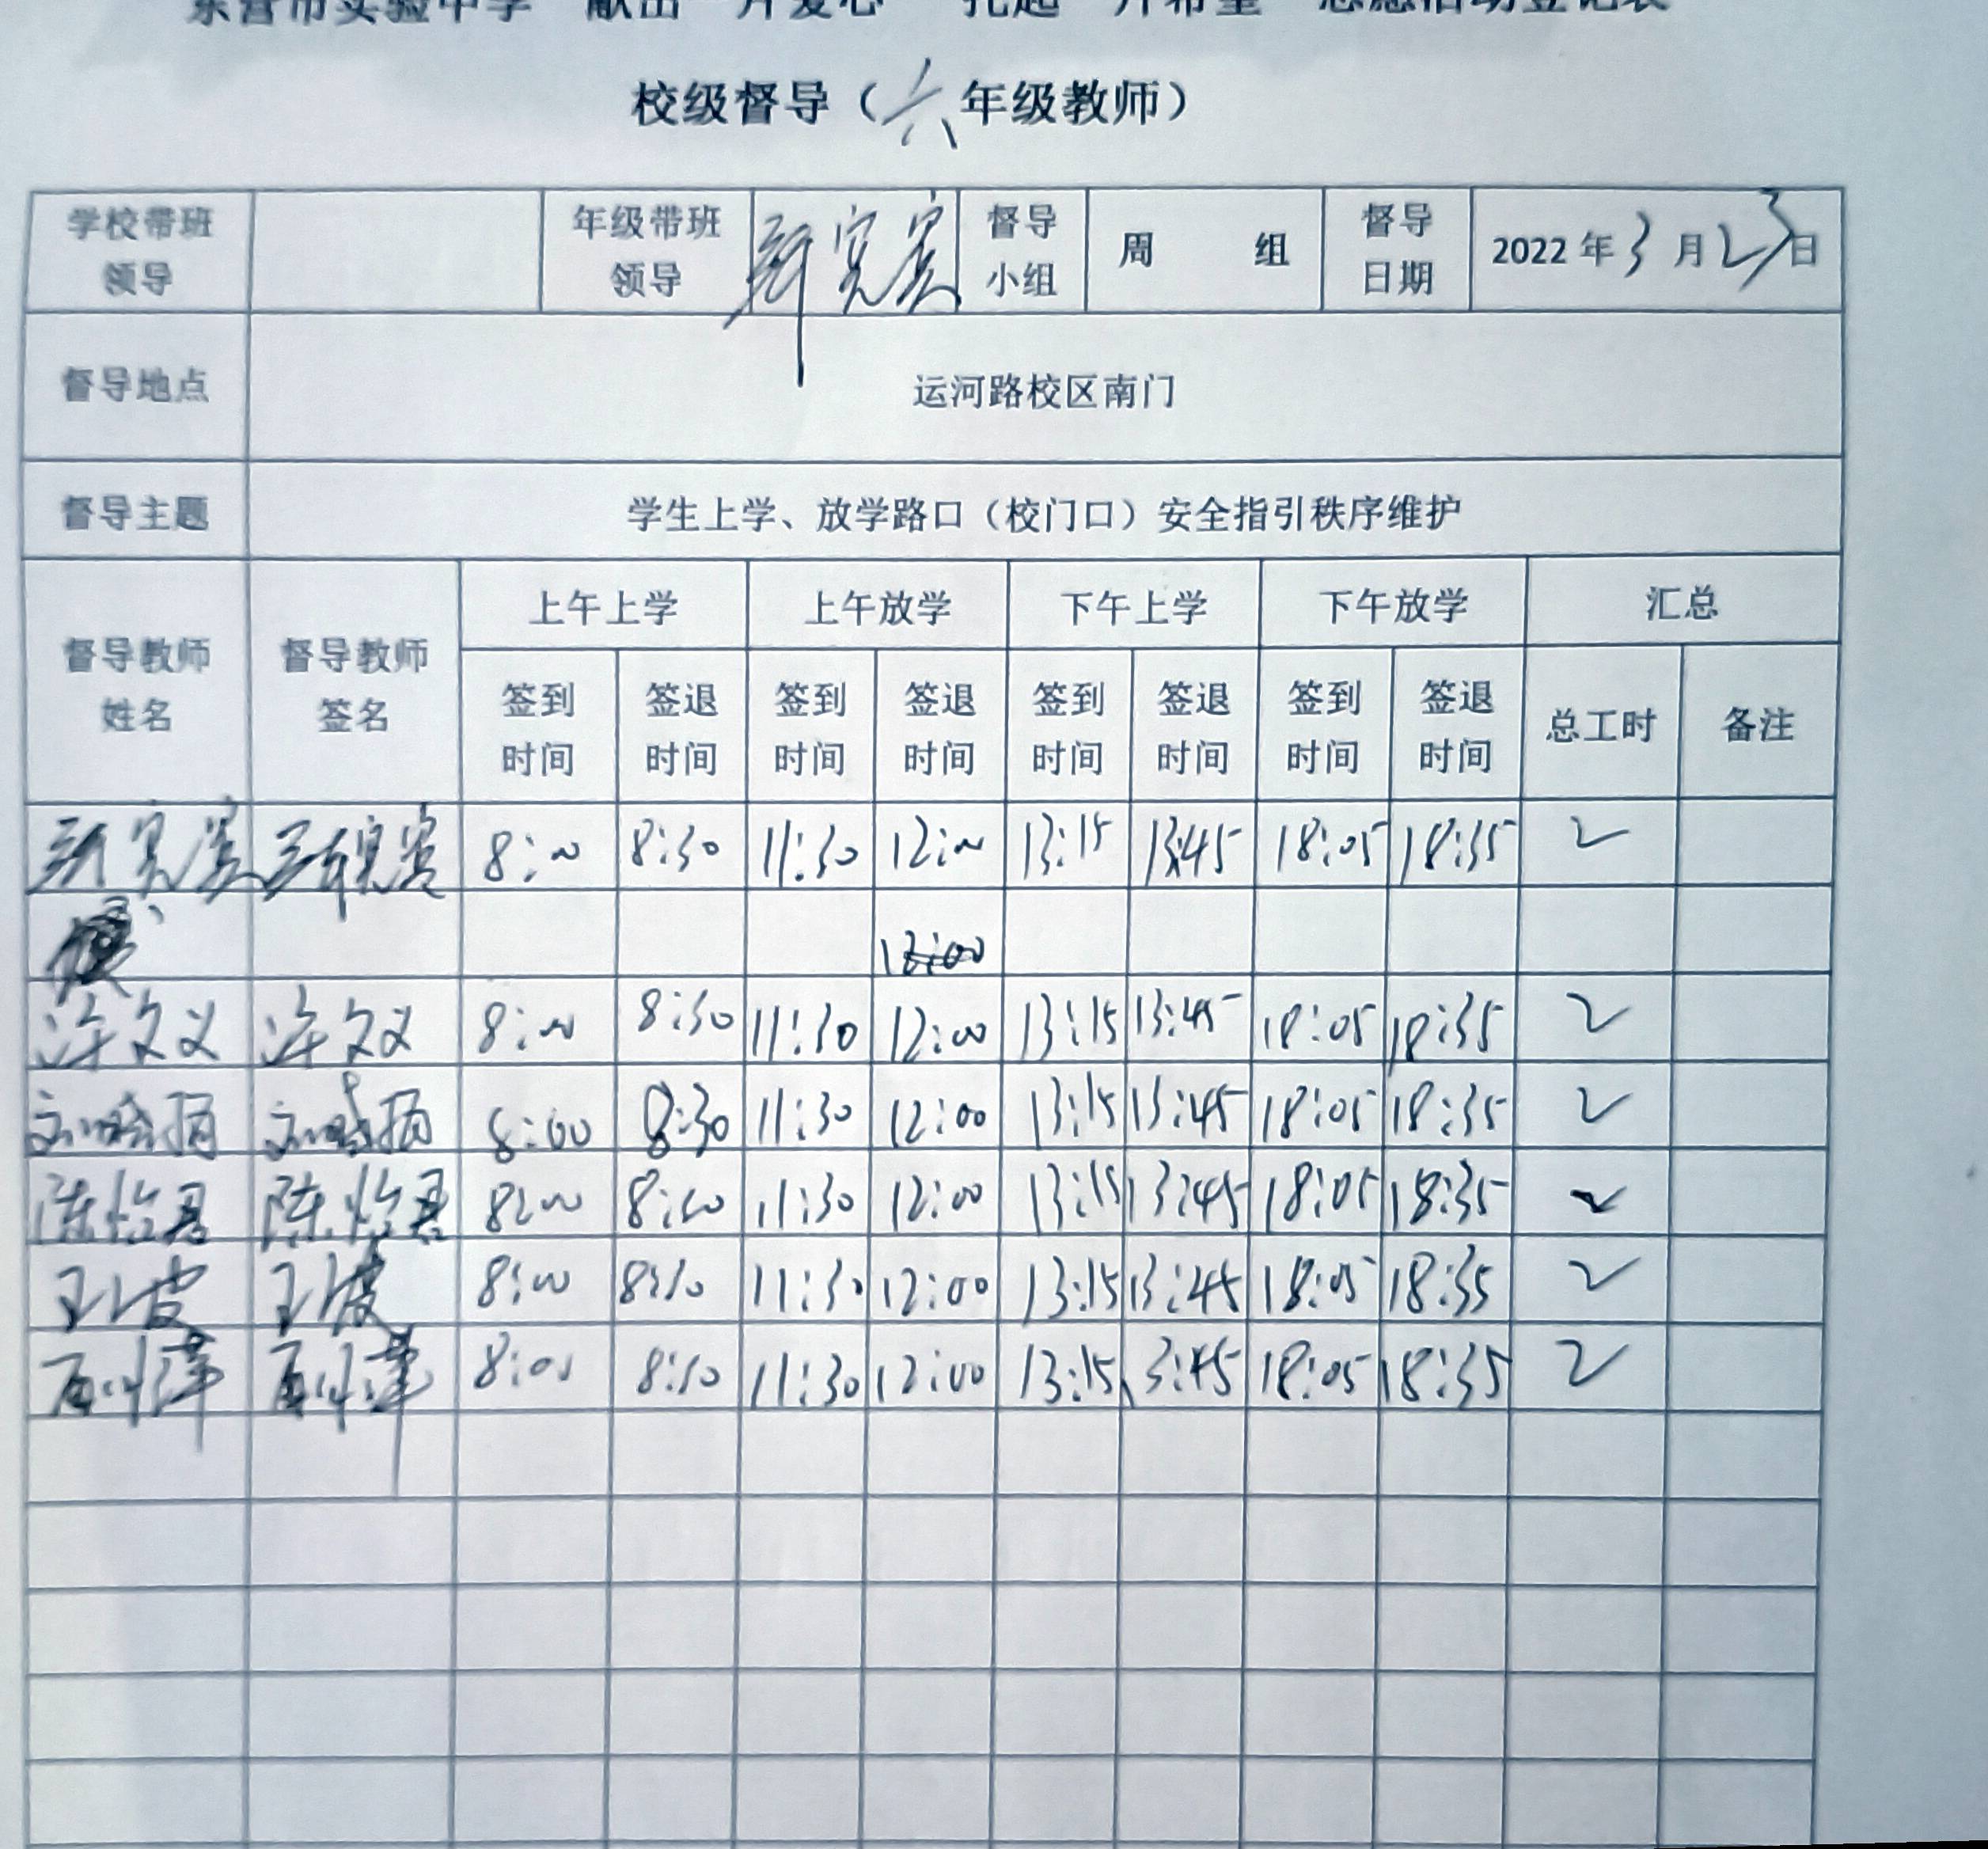 东营市实验中学“献出一片爱心 托起一片希望”志愿活动登记表
校级督导（六年级教师）
学校带班领导 年级带班领导 督导小组 周 组 督导日期 2022年3月23日
督导地点 运河路校区南门
督导主题 学生上学、放学路口（校门口）安全指引秩序维护
督导教师姓名 督导教师签名 上午上学 上午放学 下午上学 下午放学 汇总
签到时间 签退时间 签到时间 签退时间 签到时间 签退时间 签到时间 签退时间 总工时 备注
8:00 8:30 11:30 12:00 13:15 13:45 18:05 18:35 2
12:00
许文义 许文义 8:00 8:30 11:30 12:00 13:15 13:45 18:05 18:35 2
8:00 8:30 11:30 12:00 13:15 13:45 18:05 18:35 2
陈怡君 陈怡君 8:00 8:30 11:30 12:00 13:15 13:45 18:05 18:35 2
8:00 8:30 11:30 12:00 13:15 13:45 18:05 18:35 2
8:00 8:30 11:30 12:00 13:15 13:45 18:05 18:35 2